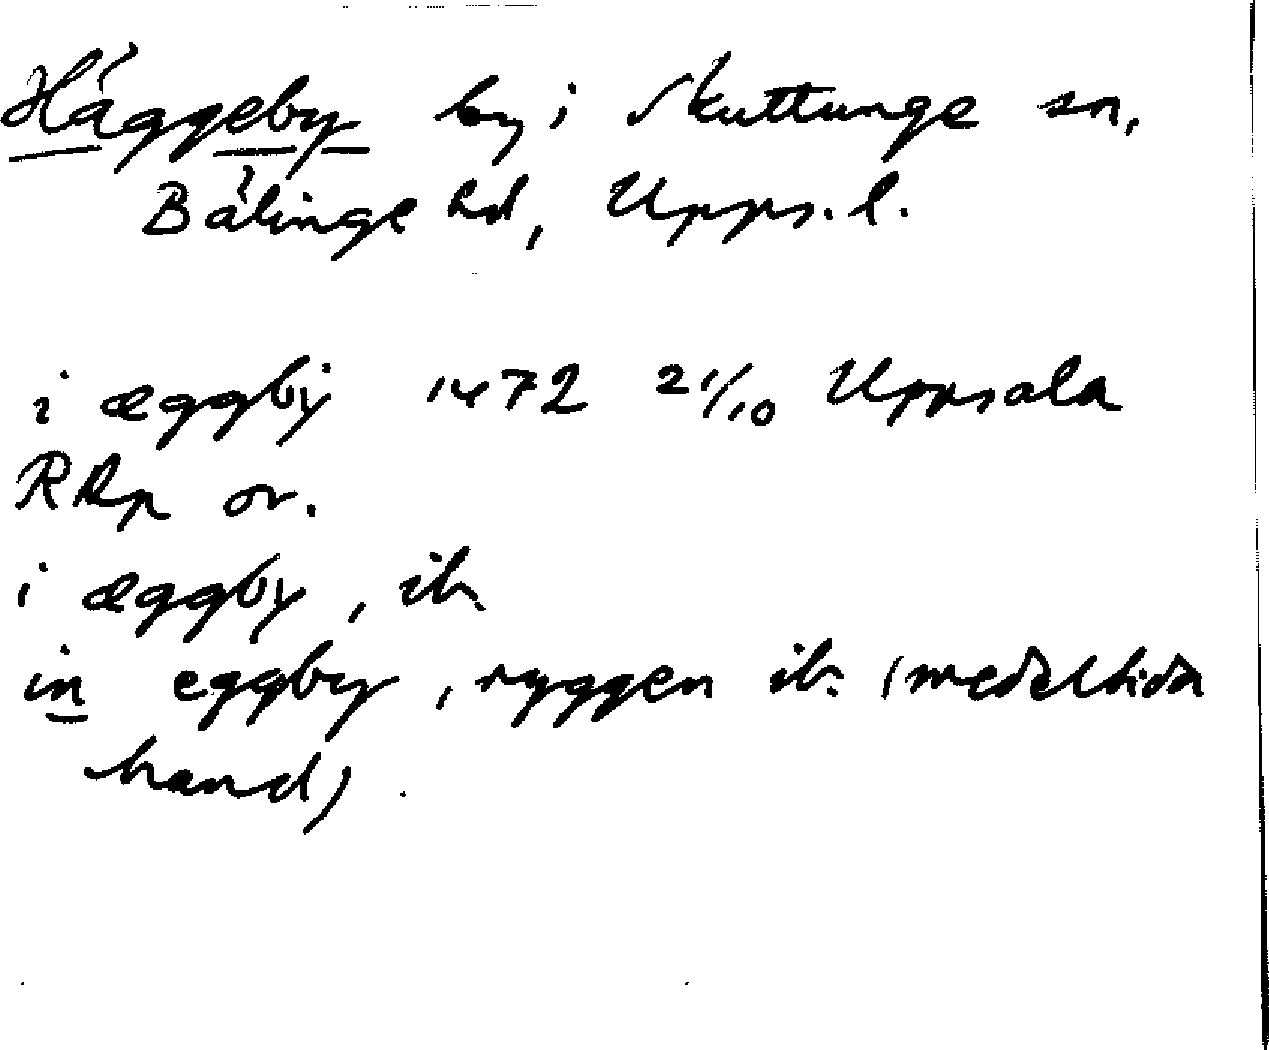 Häggeby by i Skuttunge sn,
Bälinge hd, Upps. l.
i æggby 1472 21/10 Uppsala
RAp or.
i æggby, ib.
in eggby, ryggen ib. (medeltida
hand).